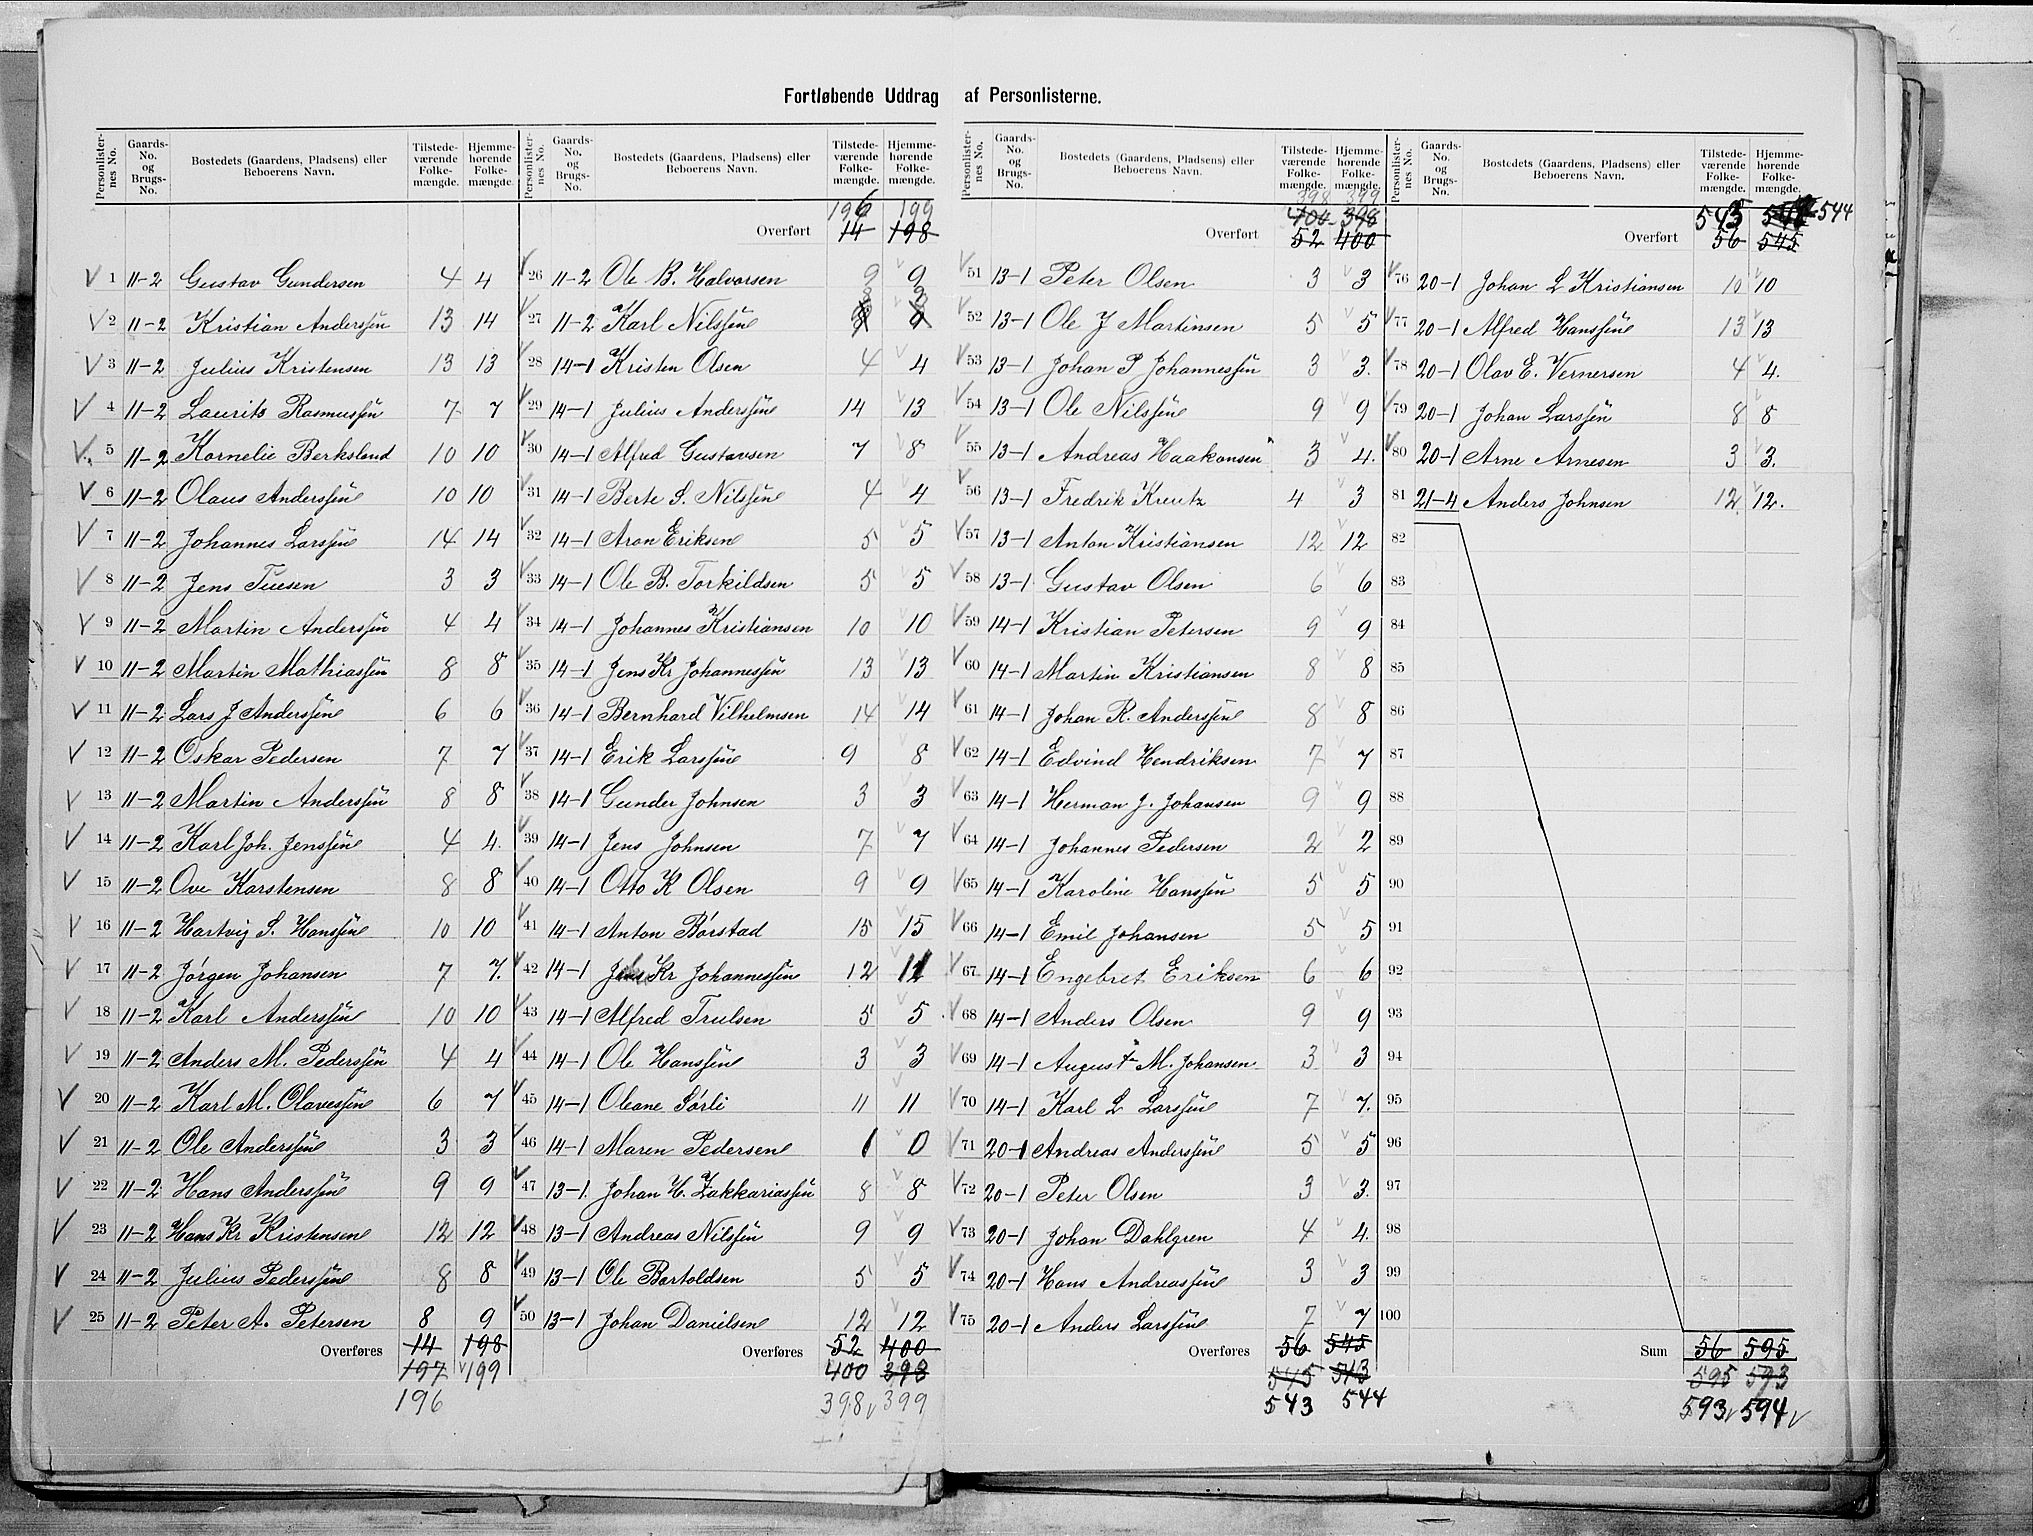 Fortløbende Uddrag af Personlisternes.
Personlister-nes No. | Gaards-No. og Brugs-No. | Bostedets (Gaardens, Pladsens) eller Beboerens Navn. | Tilstede-værende Folke-mængde. | Hjemme-hørende Folke-mængde.
1 11-2 Gustav Gundersen 4 4
2 11-2 Kristian Anderssen 13 14
3 11-2 Julius Kristensen 13 13
4 11-2 Laurits Rasmussen 7 7
5 11-2 Kornelie Berksland 10 10
6 11-2 Olaus Anderssen 10 10
7 11-2 Johannes Larssen 14 14
8 11-2 Jens Tuesen 3 3
9 11-2 Martin Anderssen 4 4
10 11-2 Martin Mathiassen 8 8
11 11-2 Lars J Anderssen 6 6
12 11-2 Oskar Pedersen 7 7
13 11-2 Martin Anderssen 8 8
14 11-2 Karl Joh. Jenssen 4 4.
15 11-2 Ove Karstensen 8 8
16 11-2 Hartvig S. Hanssen 10 10
17 11-2 Jørgen Johansen 7 7.
18 11-2 Karl Anderssen 10 10
19 11-2 Anders M. Pederssen 4 4
20 11-2 Karl M. Olavessen 6 7
21 11-2 Ole Anderssen 3 3
22 11-2 Hans Anderssen 9 9
23 11-2 Hans Kr Kristensen 12 12
24 11-2 Julius Pederssen 8 8
25 11-2 Peter A. Petersen 8 9
Overføres 14 198
197 199
196
Personlister-nes No. | Gaards-No. og Brugs-No. | Bostedets (Gaardens, Pladsens) eller Beboerens Navn. | Tilstede-værende Folke-mængde. | Hjemme-hørende Folke-mængde.
196 199
Overført 14 198
26 11-2 Ole B. Halvorsen 9 9
3 3
27 11-2 Karl Nilssen
28 14-1 Kristen Olsen 4 4
29 14-1 Julius Anderssen 14 13
30 14-1 Alfred Gustavsen 7 8
31 14-1 Berte S. Nilssen 4 4
32 14-1 Aron Eriksen 5 5
33 14-1 Ole B. Torkildsen 5 5
34 14-1 Johannes Kristiansen 10 10
35 14-1 Jens Kr Johannessen 13 13
36 14-1 Bernhard Vilhelmsen 14 14
37 14-1 Erik Larssen 9 8
38 14-1 Gunder Johnsen 3 3
39 14-1 Jens Johnsen 7 7
40 14-1 Otto K Olsen 9 9
41 14-1 Anton Børstad 15 15
42 14-1 Jens Kr Johannessen 12
43 14-1 Alfred Truelsen 5 5
44 14-1 Ole Hanssen 3 3
45 14-1 Oleane Sørli 11 11
46 14-1 Maren Pedersen 1 0
47 13-1 Johan H. Zakkariassen 8 8
48 13-1 Andreas Nilssen 9 9
49 13-1 Ole Bartoldsen 5 5
50 13-1 Johan Danielsen 12 12
Overføres 52 400
400 398
398 399
Personlister-nes No. | Gaards-No. og Brugs-No. | Bostedets (Gaardens, Pladsens) eller Beboerens Navn. | Tilstede-værende Folke-mængde. | Hjemme-hørende Folke-mængde.
398 399
400 398
Overført 52 400
51 13-1 Peter Olsen 3 3
52 13-1 Ole J Martinsen 5 5
53 13-1 Johan P Johannessen 3 3.
54 13-1 Ole Nilssen 9 9
55 13-1 Andreas Haakonsen 3 4.
56 13-1 Fredrik Kreutz 4 3
57 13-1 Anton Kristiansen 12 12
58 13-1 Gustav Olsen 6 6
59 14-1 Kristian Petersen 9 9
60 14-1 Martin Kristiansen 8 8
61 14-1 Johan R. Anderssen 8 8
62 14-1 Edvind Hendriksen 7 7
63 14-1 Herman J. Johansen 9 9
64 14-1 Johannes Pedersen 2 2
65 14-1 Karoline Hanssen 5 5
66 14-1 Emil Johansen 5 5
67 14-1 Engebret Eriksen 6 6
68 14-1 Anders Olsen 9 9
69 14-1 August M. Johansen 3 3
70 14-1 Karl L Larssen 7 7.
71 20-1 Andreas Anderssen 5 5
72 20-1 Peter Olsen 3 3.
73 20-1 Johan Dahlgren 4 4.
74 20-1 Hans Andreassen 3 3
75 20-1 Anders Larssen 7 7
Overføres 56 545
545 543
543 544
Personlister-nes No. | Gaards-No. og Brugs-No. | Bostedets (Gaardens, Pladsens) eller Beboerens Navn. | Tilstede-værende Folke-mængde. | Hjemme-hørende Folke-mængde.
543 544
Overført 56 545
76 20-1 Johan L Kristiansen 10 10
77 20-1 Alfred Hanssen 13 13
78 20-1 Olav E. Vernersen 4 4.
79 20-1 Johan Larssen 8 8
80 20-1 Arne Arnesen 3 3.
81 21-4 Anders Johnsen 12 12.
82
83
84
85
86
87
88
89
90
91
92
93
94
95
96
97
98
99
100
Sum 56 595
595 593
593 594